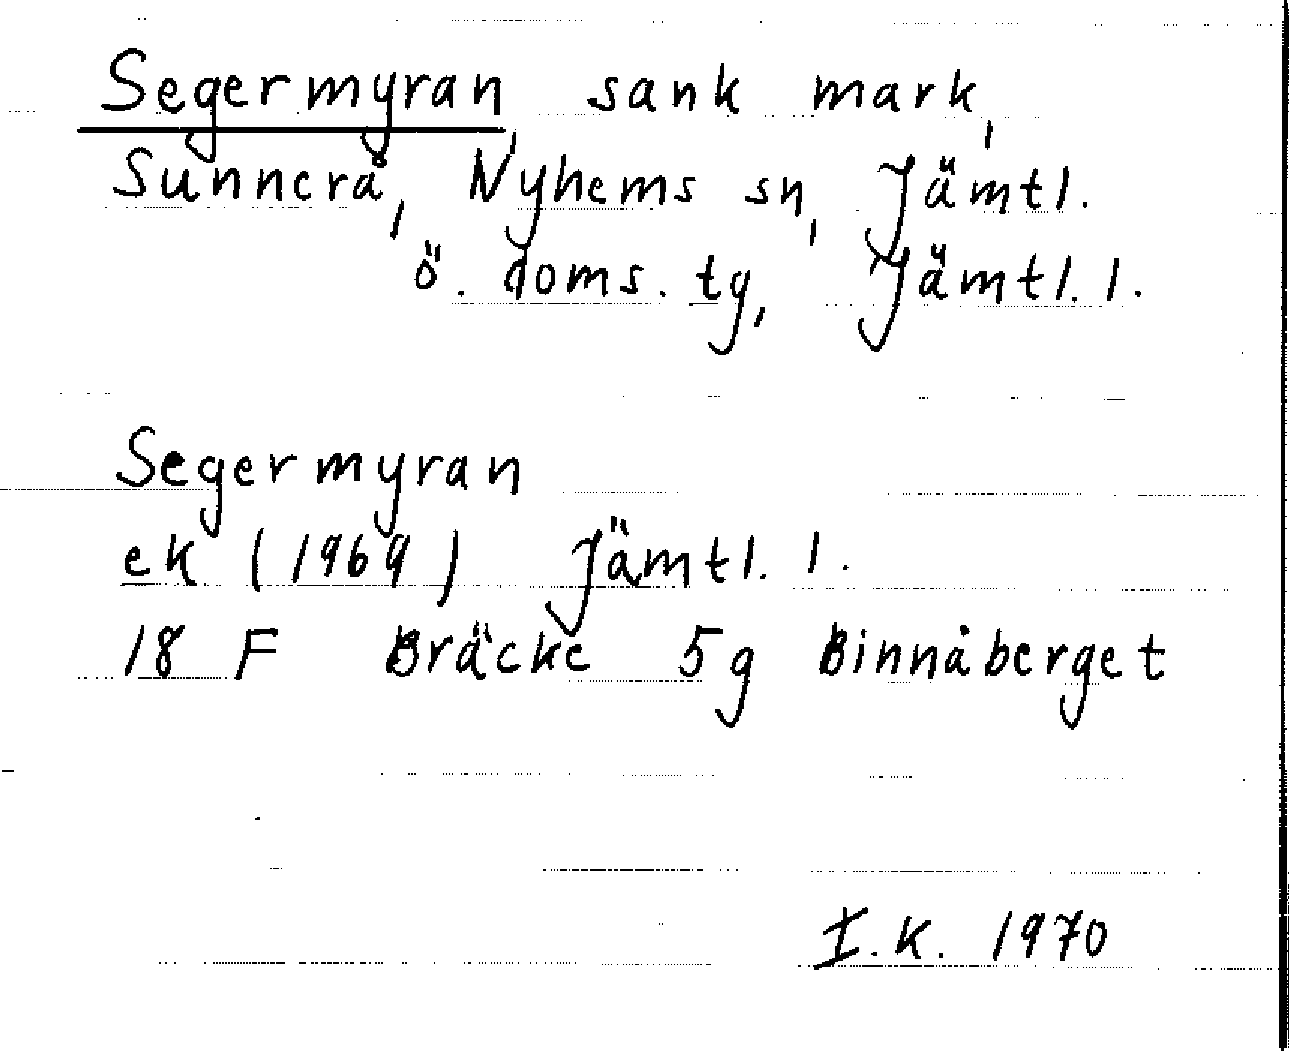 Segermyran, sank mark,
Sunnerå, Nyhems sn, Jämtl.
ö. doms. tg, Jämtl. l.
Segermyran
ek (1969) Jämtl. l.
18 F Bräcke 5g Binnåberget
I.K. 1970